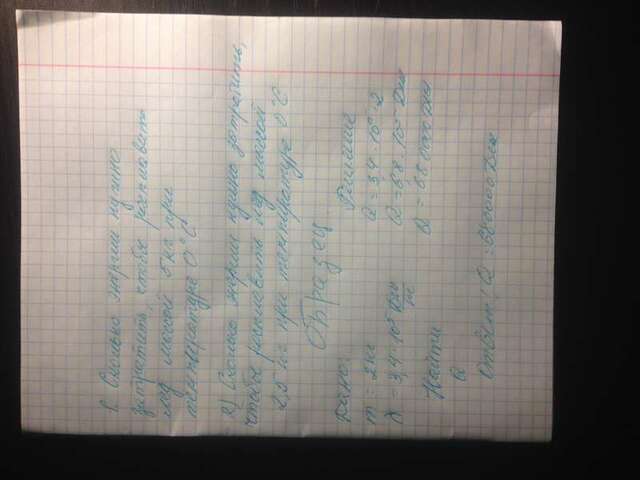 1. Сколько энергии нужно
затратить, чтобы расплавить
лед массой 5 кг при
температуре 0°C
2) Сколько энергии нужно затратить,
чтобы расплавить лед массой
2,5 кг при температуре 0°C
Образец
Дано:
m = 2кг
λ = 3,4·10⁵ Дж/кг
Найти
Q
Решение
Q = 3,4·10⁵·2
Q = 6,8·10⁵ Дж
Q = 68 0000 Дж
Ответ: Q = 680000 Дж